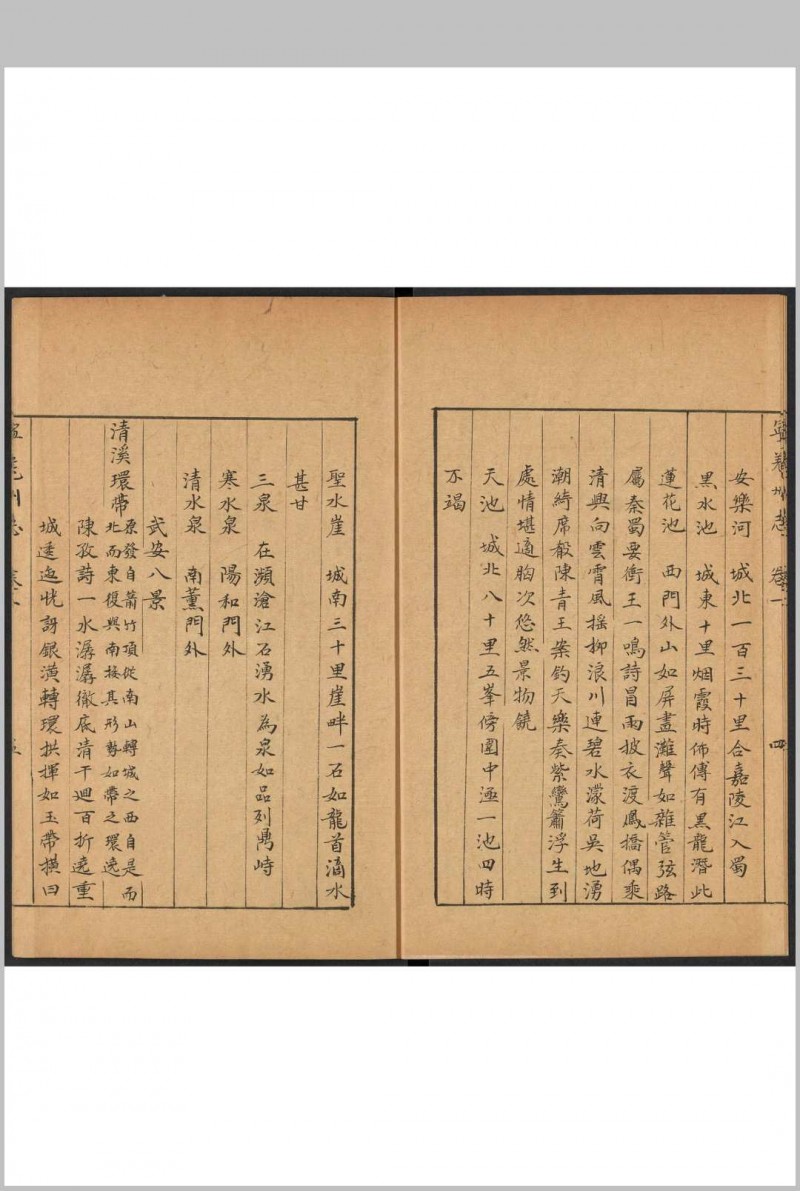 寧羗州志 卷一 四
安樂河 城北一百三十里合嘉陵江入蜀
黑水池 城東十里烟霞時佈傳有黑龍潛此
蓮花池 西門外山如屏畫灘聲如雜管弦路
屬秦蜀要衝王一鳴詩冒雨披衣渡鳳橋偶乘
清興向雲霄風摇柳浪川連碧水濛荷吳地湧
潮綺席殽陳青玉案鈞天樂奏紫鸞簫浮生到
處情堪適胸次悠然景物饒
天池 城北八十里五峯傍圍中涵一池四時
不竭
聖水崖 城南三十里崖畔一石如龍首滴水
甚甘
三泉 在瀕滄江石湧水為泉如品列鼎峙
寒水泉 陽和門外
清水泉 南薰門外
武安八景
清溪環帶 原發自箭竹項從南山轉城之西自是而
北而東復與南接其形勢如帶之環遶
陳孜詩一水潺潺徹底清千廻百折遶重
城逶迤恍訝銀潢轉環拱揮如玉帶橫曰